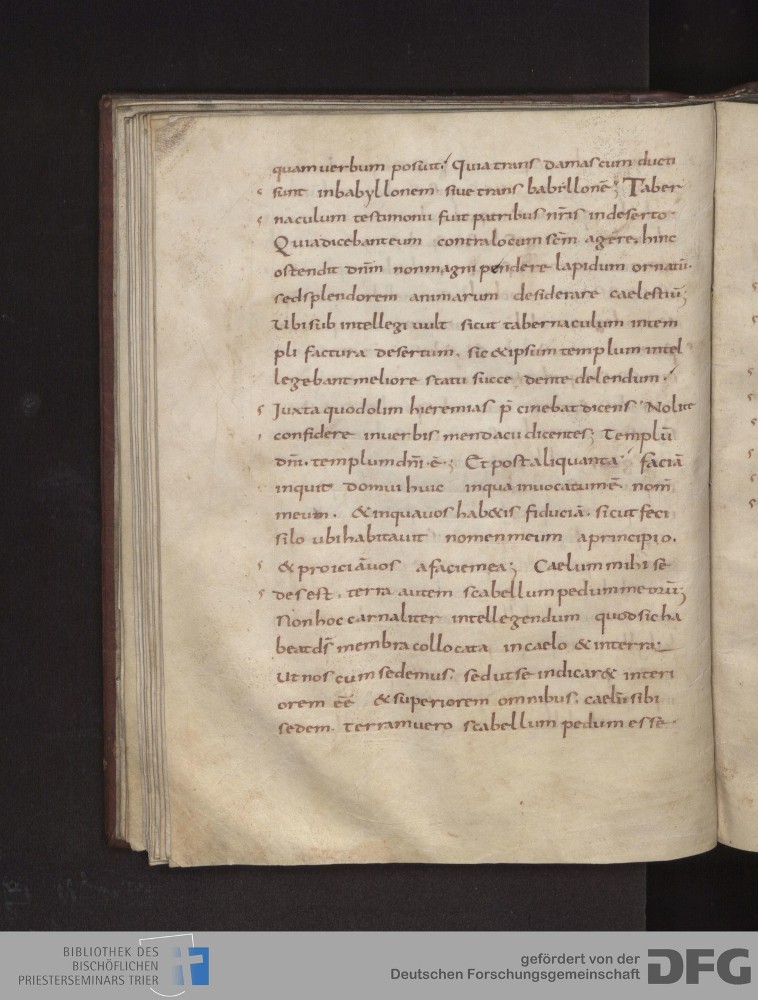 quam uerbum posuit; Quia trans damascum ducti
sunt in babyllonem siue trans babillonē; Taber
naculum testimonii fuit patribus nr̄is in deserto.
Quia dicebant eum contra locum sc̄m agere, hinc
ostendit dn̄m non magni pendere lapidum ornatū.
sed splendorem animarum desiderare caelestiū;
Ubi sub intellegi uult sicut tabernaculum in tem
pli factura desertum. sic & ipsum templum intel
legebant meliore statu succedente delendum.
Juxta quod olim hieremias p̄cinebat dicens Nolite
confidere in uerbis mendacii dicentes; Templū
dn̄i. templum dn̄i ē; Et post aliquanta faciā
inquit domui huic in qua inuocatum ē nom̄
meum. & in qua uos hab&is fiduciā. sicut feci
silo ubi habitauit nomen meum a principio.
& proiciā uos a facie mea; Caelum mihi se
des est. terra autem scabellum pedum meorū;
Non hoc carnaliter intellegendum quod sic ha
beat ds̄ membra collocata in caelo & in terra.
Ut nos cum sedemus. sed ut se indicar& interi
orem eē & superiorem omnibus. caelū sibi
sedem. terram uero scabellum pedum esse.
BIBLIOTHEK DES
BISCHÖFLICHEN
PRIESTERSEMINARS TRIER
gefördert von der
Deutschen Forschungsgemeinschaft
DFG